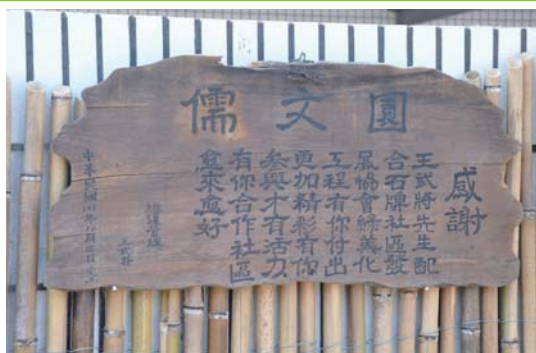 儒文園
感謝
王武將先生配
合石牌社區發
展協會綠美化
工程有你付出
更加精彩有你
參與才有活力
有你合作社區
愈來愈好
維護管理
王武將
中華民國